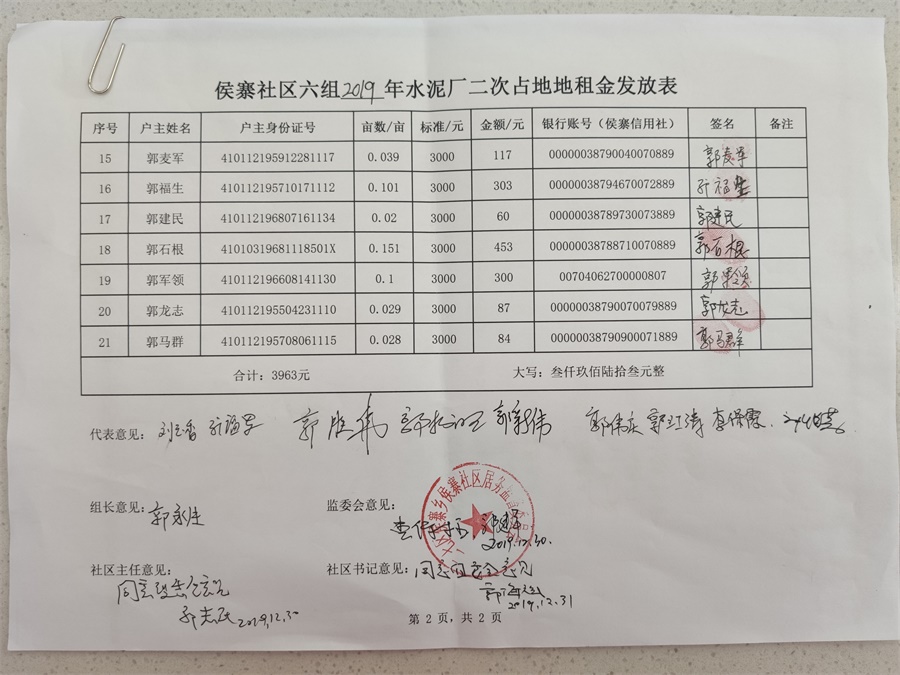 侯寨社区六组2019年水泥厂二次占地地租金发放表
序号 户主姓名 户主身份证号 亩数/亩 标准/元 金额/元 银行账号（侯寨信用社） 签名 备注
15 郭麦军 410112195912281117 0.039 3000 117 00000038790040070889 郭麦军
16 郭福生 410112195710171112 0.101 3000 303 00000038794670072889 郭福生
17 郭建民 410112196807161134 0.02 3000 60 00000038789730073889 郭建民
18 郭石根 41010319681118501X 0.151 3000 453 00000038788710070889 郭石根
19 郭军领 410112196608141130 0.1 3000 300 00704062700000807 郭军领
20 郭龙志 410112195504231110 0.029 3000 87 00000038790070079889 郭龙志
21 郭马群 410112195708061115 0.028 3000 84 00000038790900071889 郭马群
合计：3963元 大写：叁仟玖佰陆拾叁元整
代表意见：
组长意见：郭永生 监委会意见：
2019.12.30.
社区主任意见： 社区书记意见：
郭志民 2019.12.30 2019.12.31
第 2 页，共 2 页